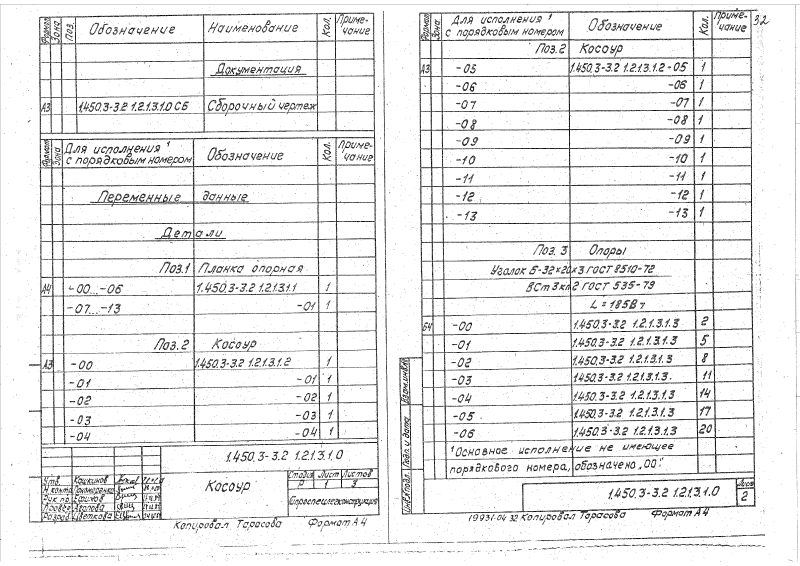 Формат Зона Поз. Обозначение Наименование Кол. Приме-чание
Документация
А3 1.450.3-3.2 1.2.1.3.1.0 СБ Сборочный чертеж
Формат Зона Для исполнения ¹ с порядковым номером Обозначение Кол. Приме-чание
Переменные данные
Детали
Поз.1 Планка опорная
А4 -00...-06 1.450.3-3.2 1.2.1.3.1.1 1
-07...-13 -01 1
Поз.2 Косоур
А3 -00 1.450.3-3.2 1.2.1.3.1.2 1
-01 -01 1
-02 -02 1
-03 -03 1
-04 -04 1
1.450.3-3.2 1.2.1.3.1.0
Утв. Кошкинов
Н.контр. Пономаренко
Рук.пр. Ефимов
Провер.
Разраб. Цветкова
Косоур
Стадия Лист Листов
Р 1 3
Гипроспецлегконструкция
Копировал Тарасова Формат А4
32
Формат Зона Для исполнения ¹ с порядковым номером Обозначение Кол. Приме-чание
Поз.2 Косоур
А3 -05 1.450.3-3.2 1.2.1.3.1.2-05 1
-06 -06 1
-07 -07 1
-08 -08 1
-09 -09 1
-10 -10 1
-11 -11 1
-12 -12 1
-13 -13 1
Поз. 3 Опоры
Уголок Б-32×20×3 ГОСТ 8510-72
ВСт 3кп2 ГОСТ 535-79
L = 185
БЧ -00 1.450.3-3.2 1.2.1.3.1.3 2
-01 1.450.3-3.2 1.2.1.3.1.3 5
-02 1.450.3-3.2 1.2.1.3.1.3 8
-03 1.450.3-3.2 1.2.1.3.1.3. 11
-04 1.450.3-3.2 1.2.1.3.1.3 14
-05 1.450.3-3.2 1.2.1.3.1.3 17
-06 1.450.3-3.2 1.2.1.3.1.3 20
¹ Основное исполнение не имеющее
порядкового номера, обозначено „00"
Инв.№ подл. Подп. и дата Взам.инв.№
1.450.3-3.2 1.2.1.3.1.0
Лист
2
19931-04 32 Копировал Тарасова Формат А4